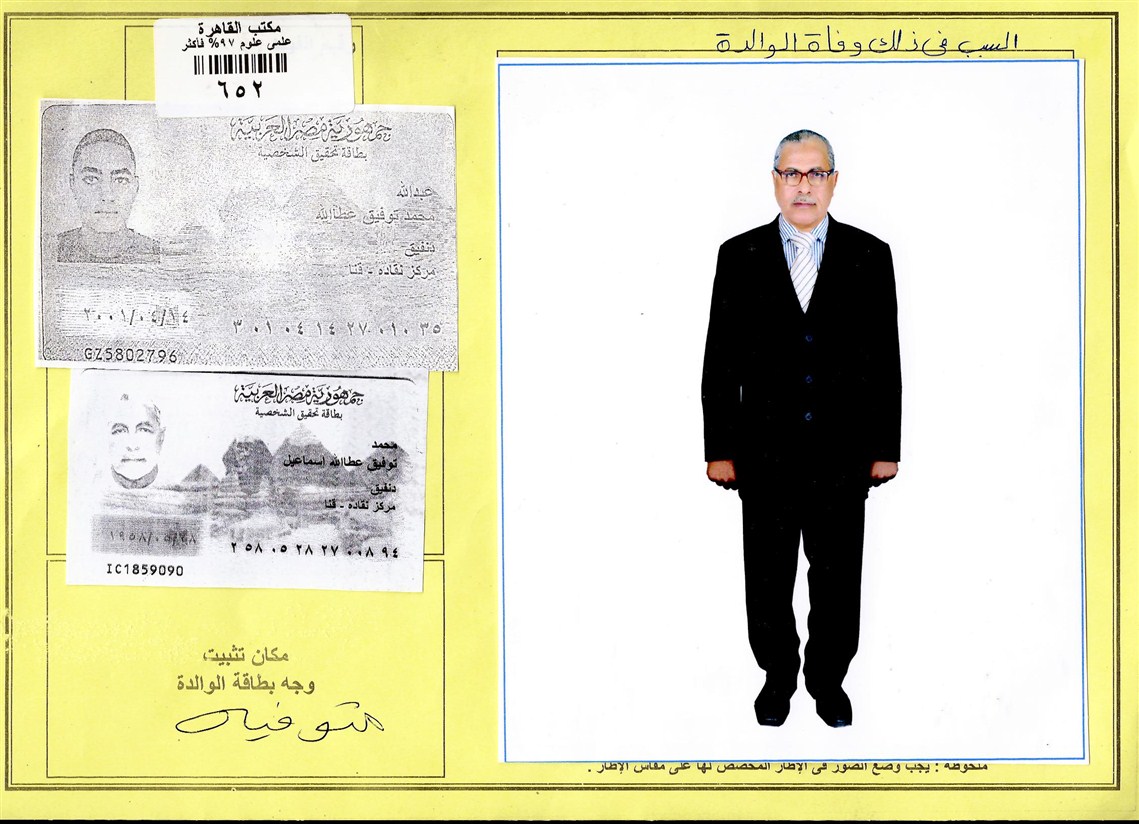 السبب فى ذلك وفاة الوالدة
مكتب القاهرة
علمى علوم ٩٧% فأكثر
٦٥٢
جمهورية مصر العربية
بطاقة تحقيق الشخصية
عبدالله
محمد توفيق عطاالله
دنفيق
مركز نقاده - قنا
٢٠٠١/٠٤/١٤
٣ ٠١ ٠٤ ١٤ ٢٧ ٠١٠ ٣٥
GZ5802796
جمهورية مصر العربية
بطاقة تحقيق الشخصية
محمد
توفيق عطاالله اسماعيل
دنفيق
مركز نقاده - قنا
١٩٥٨/٠٥/٢٨
٢ ٥٨ ٠٥ ٢٨ ٢٧ ٠٠٨ ٩٤
IC1859090
مكان تثبيت
وجه بطاقة الوالدة
متوفيه
ملحوظة : يجب وضع الصور فى الإطار المخصص لها على مقاس الإطار .